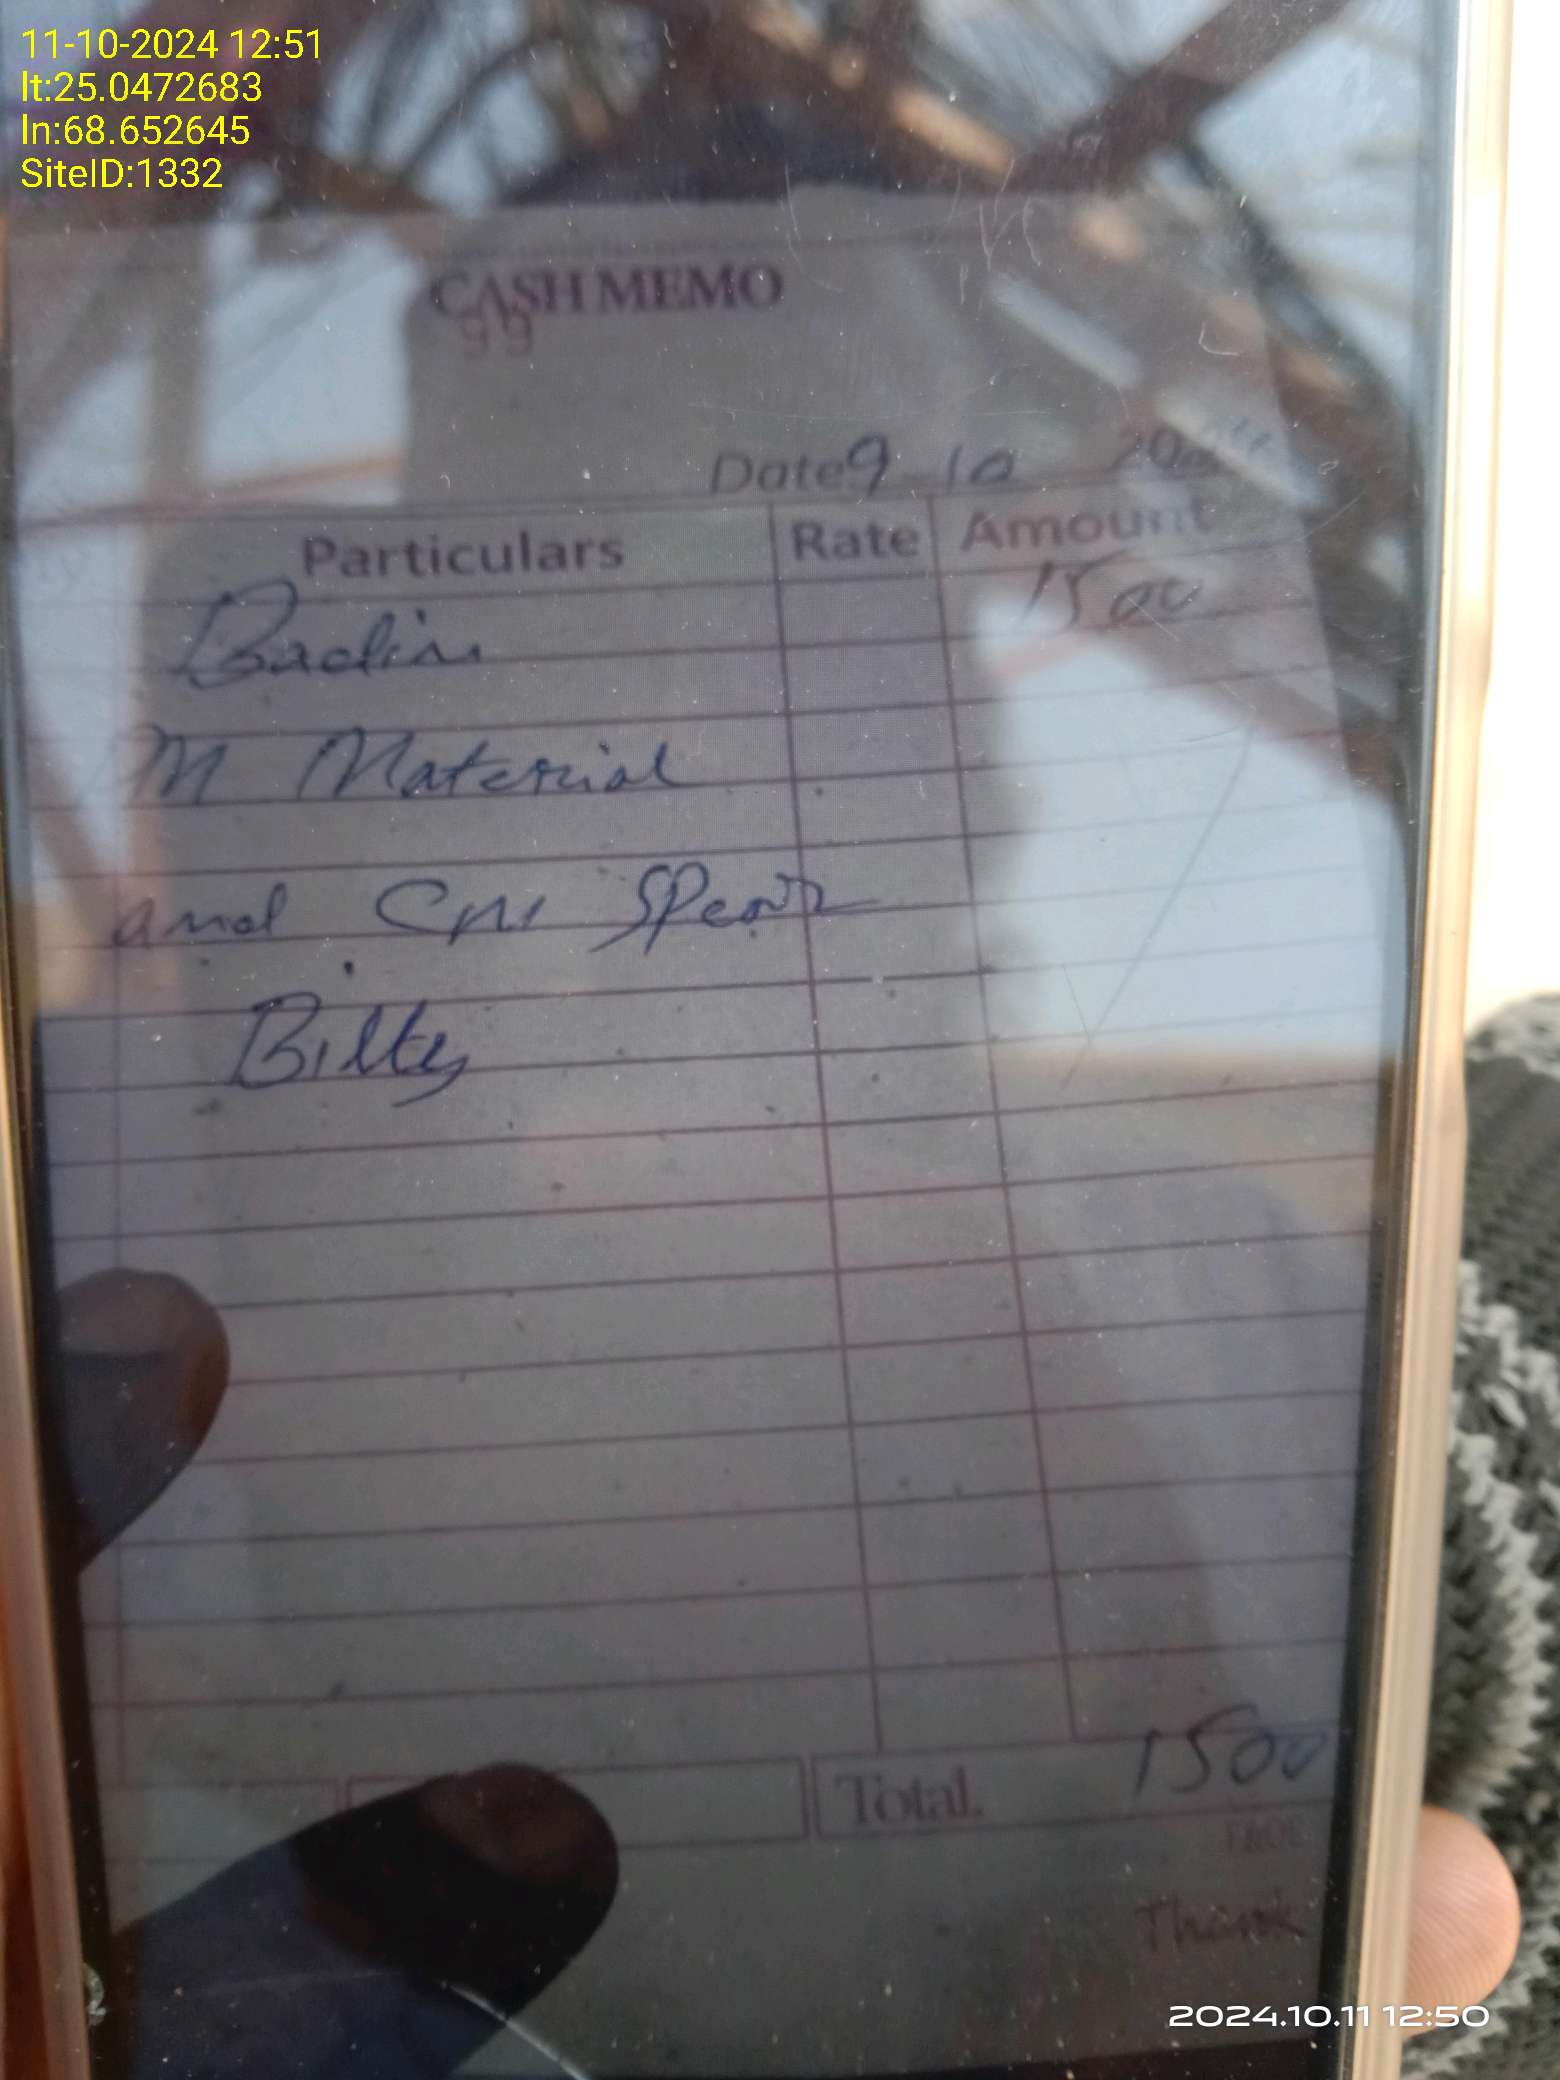 11-10-2024 12:51
lt:25.0472683
ln:68.652645
SiteID:1332
CASH MEMO
99
Date 9 10 20
Particulars Rate Amount
Badin 1500
M Material
and CM Spear
Bilty
Total. 1500
Thank
2024.10.11 12:50